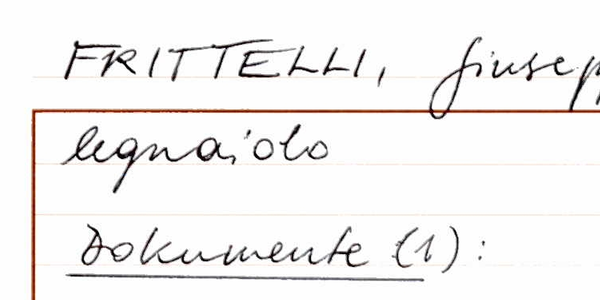 FRITTELLI, Giusepp
legnaiolo
Dokumente (1):